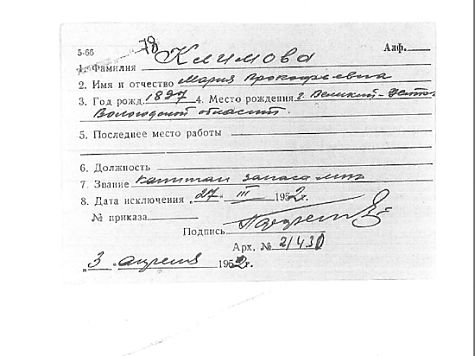 78
5-66 Алф.
1. Фамилия Климова
2. Имя и отчество Мария Прокофьевна
3. Год рожд. 1897 4. Место рождения г. Великий-Устюг
Вологодской области
5. Последнее место работы
6. Должность
7. Звание капитан запаса
8. Дата исключения „27" III 1952 г.
№ приказа
Подпись
Арх. № 21430
„3" апреля 1952 г.